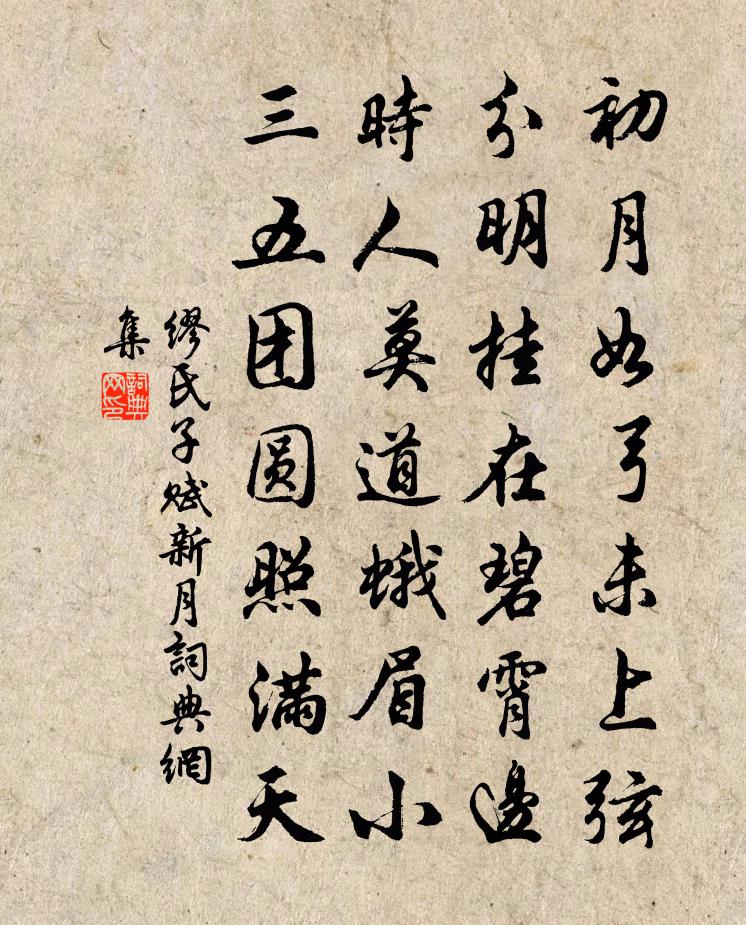 初月如弓未上弦
分明挂在碧霄邊
時人莫道蛾眉小
三五团圆照满天
繆氏子賦新月詞典網
集
詞典
网印